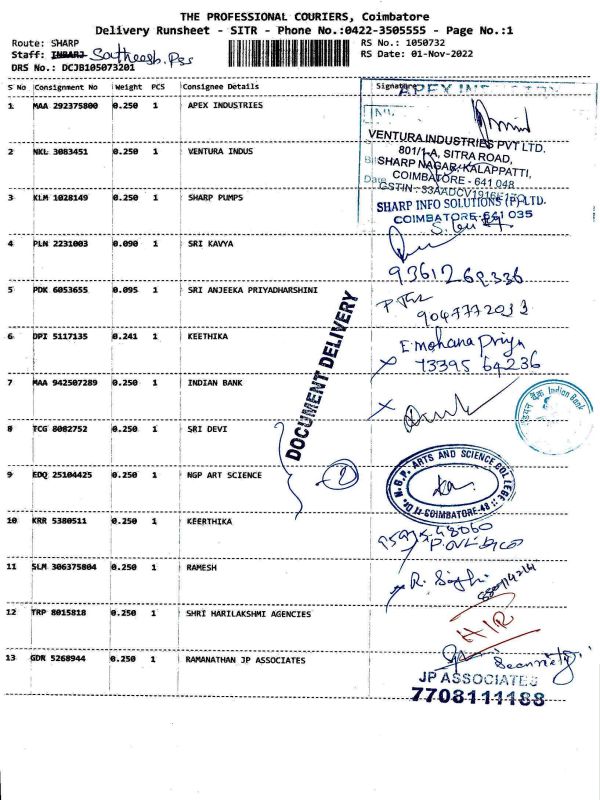 THE PROFESSIONAL COURIERS, Coimbatore
Delivery Runsheet - SITR - Phone No.:0422-3505555 - Page No.:1
Route: SHARP RS No.: 1050732
Staff: INBARJ RS Date: 01-Nov-2022
DRS No.: DCJB105073201
S No Consignment No Weight PCS Consignee Details Signature
1 MAA 292375800 0.250 1 APEX INDUSTRIES
APEX INDUSTRY
2 NKL 3083451 0.250 1 VENTURA INDUS
VENTURA INDUSTRIES PVT LTD.
801/1-A, SITRA ROAD,
SHARP NAGAR, KALAPPATTI,
COIMBATORE - 641 048
3 KLM 1028149 0.250 1 SHARP PUMPS
SHARP INFO SOLUTIONS (P) LTD.
COIMBATORE-641 035
4 PLN 2231003 0.090 1 SRI KAVYA
5 PDK 6053655 0.095 1 SRI ANJEEKA PRIYADHARSHINI
9047772033
6 DPI 5117135 0.241 1 KEETHIKA
E mohana priya
73395 64236
7 MAA 942507289 0.250 1 INDIAN BANK
Indian Bank
DOCUMENT DELIVERY
8 TCG 8082752 0.250 1 SRI DEVI
9 EDQ 25104425 0.250 1 NGP ART SCIENCE
2
N.G.P. ARTS AND SCIENCE COLLEGE
COIMBATORE-48
10 KRR 5380511 0.250 1 KEERTHIKA
11 SLM 306375804 0.250 1 RAMESH
12 TRP 8015818 0.250 1 SHRI HARILAKSHMI AGENCIES
13 GDR 5268944 0.250 1 RAMANATHAN JP ASSOCIATES
JP ASSOCIATES
7708111188